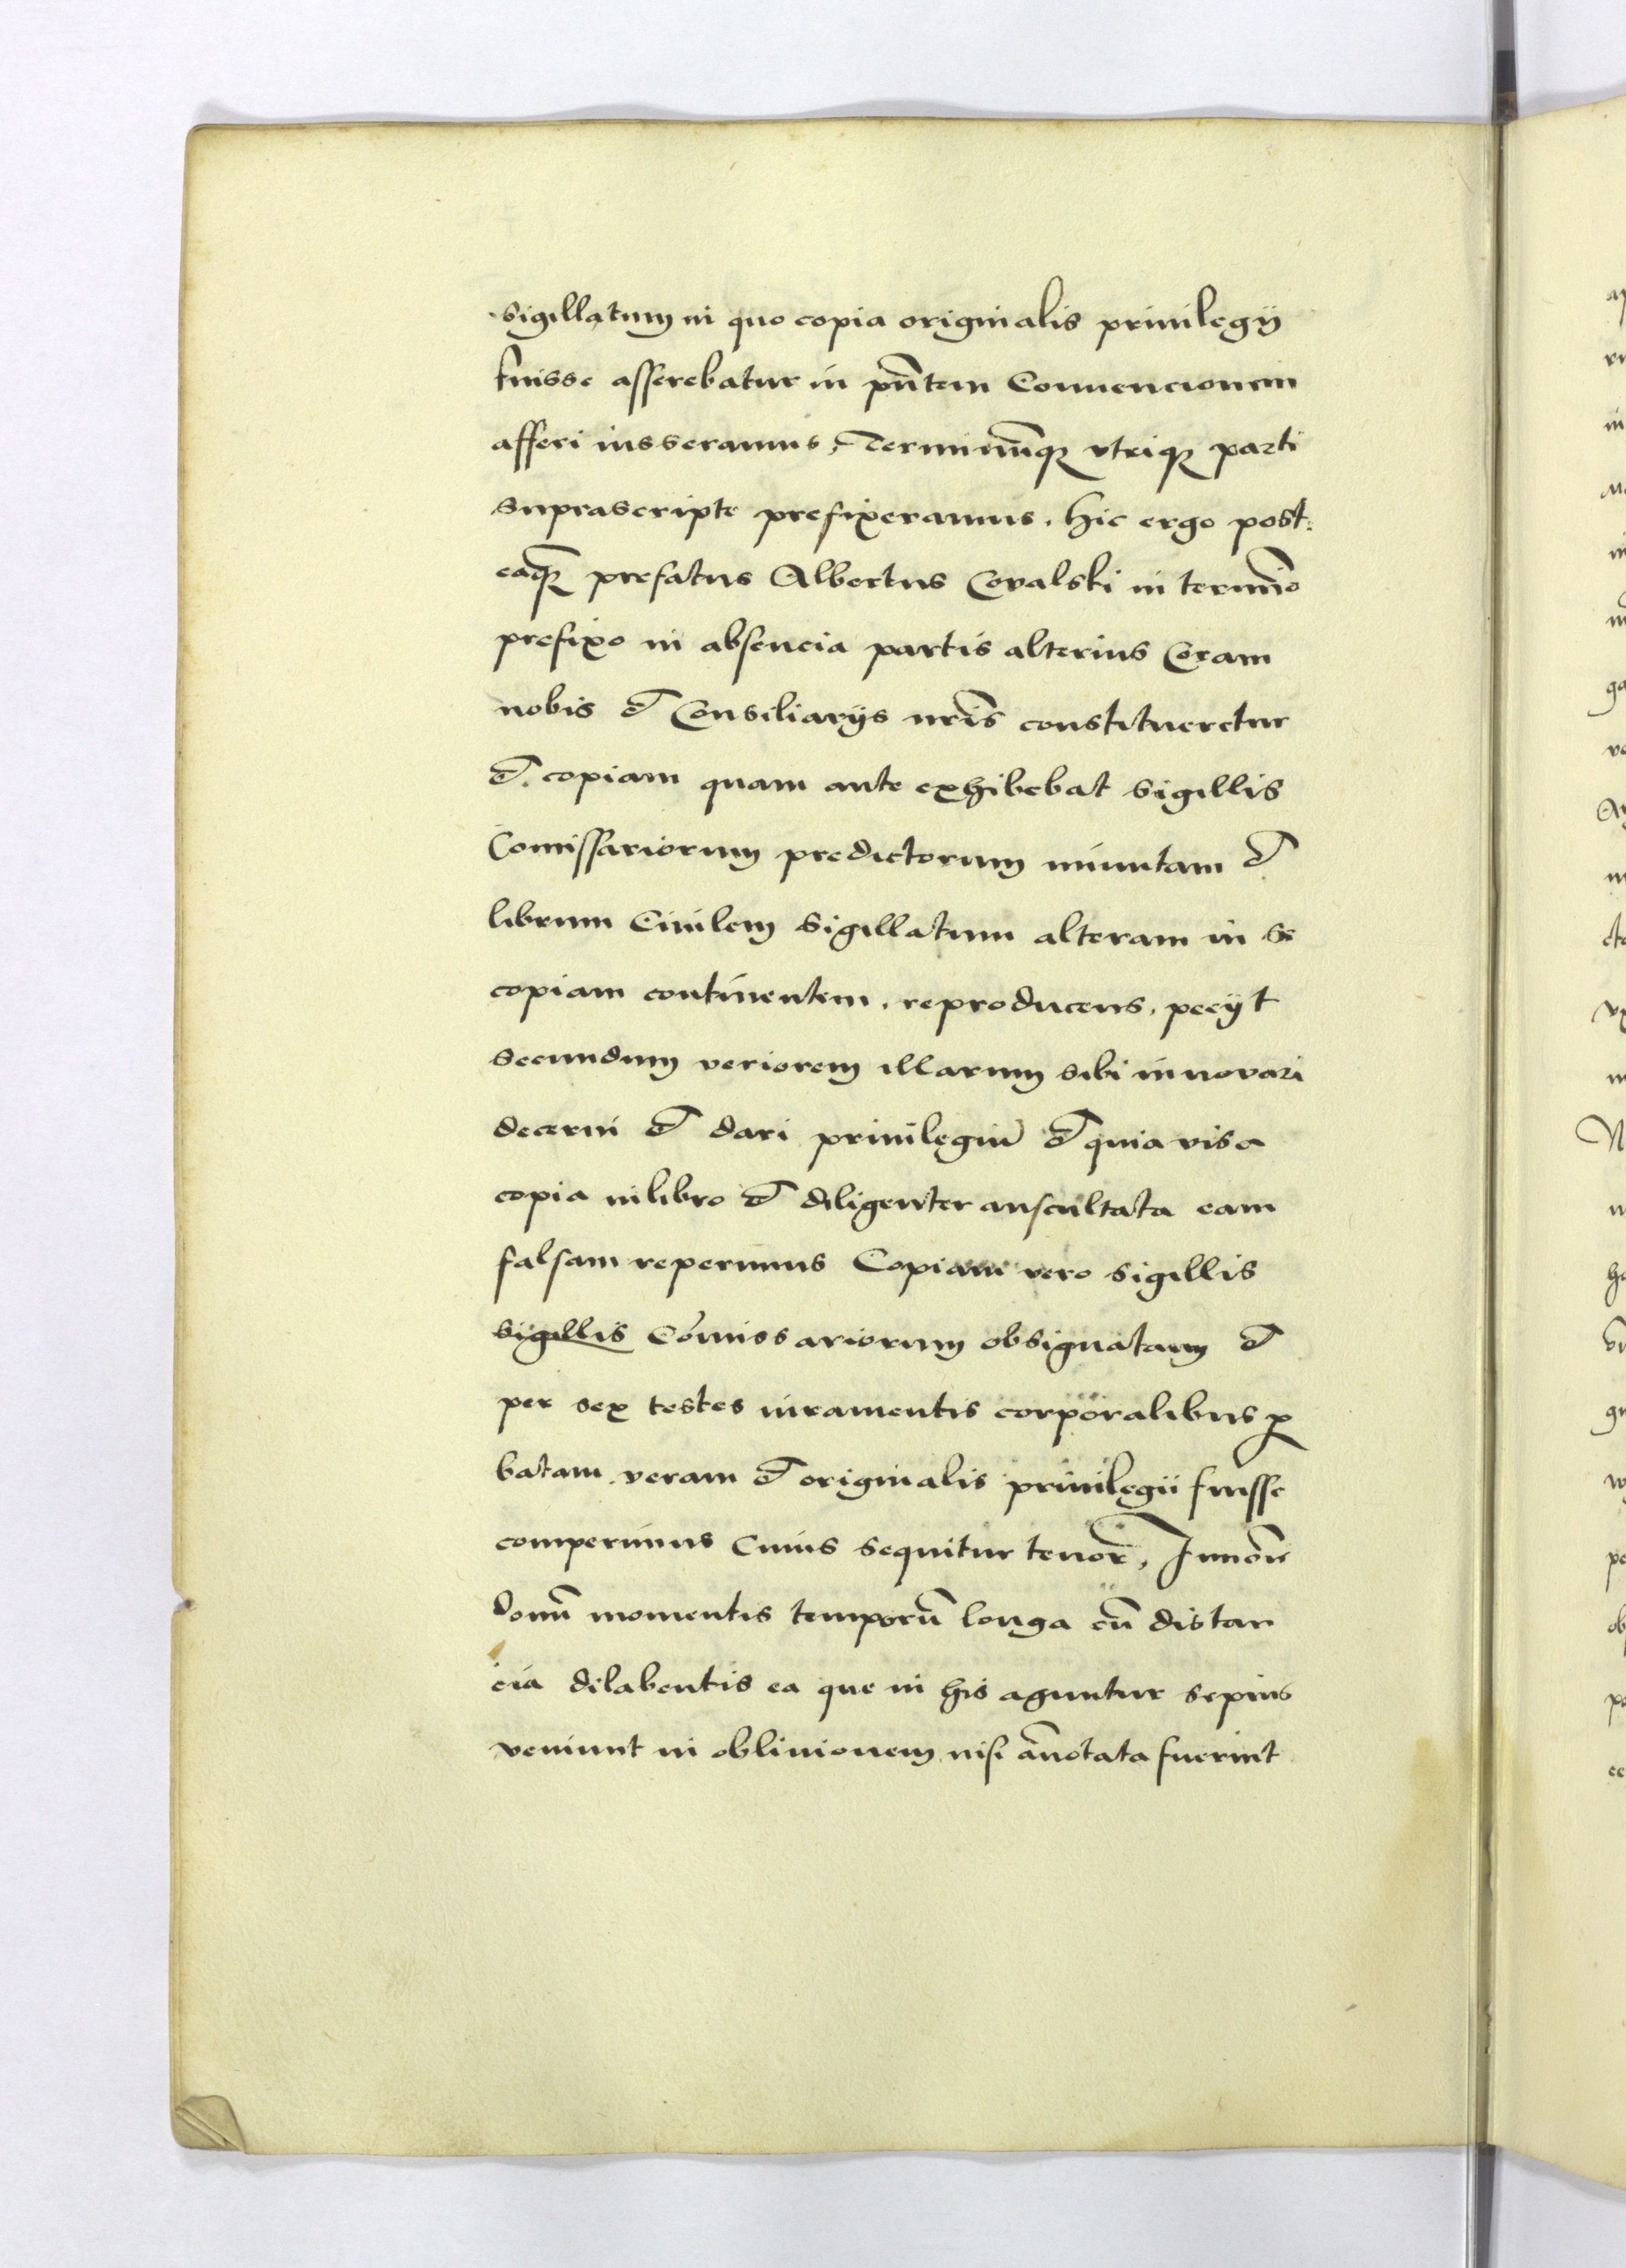 sigillatum in quo copia originalis priuilegij
fuisse asserebatur in pn̄tem Conuencionem
afferi iusseramus, Terminūq̃ vtriq̃ parti
suprascripte prefixeramus. hic ergo post:
eaq̃ prefatus Albertus Covalski in termīo
prefixo in absencia partis alterius Coram
nobis et Consiliarijs nr̄is constitueretur
et copiam quam ante exhibebat sigillis
Comissariorum predictorum munitam et
librum Ciuilem sigillatum alteram in se
copiam continentem. reproducens. pecijt
secundum veriorem illarum sibi innovari
decerni et dari priuilegiū et quia visa
copia in libro et diligenter auscultata eam
falsam reperimus Copiam vero sigillis
sigillis Cōmissariorum obsignatam et
per sex testes iuramentis corporalibus ꝓ
batam veram et originalis priuilegii fuisse
comperimus Cuius sequitur tenor̄,
donū momentis temporū longa cū distan
cia dilabentis ea que in his aguntur sepius
veniunt in obliuionem nisi an̄otata fuerint